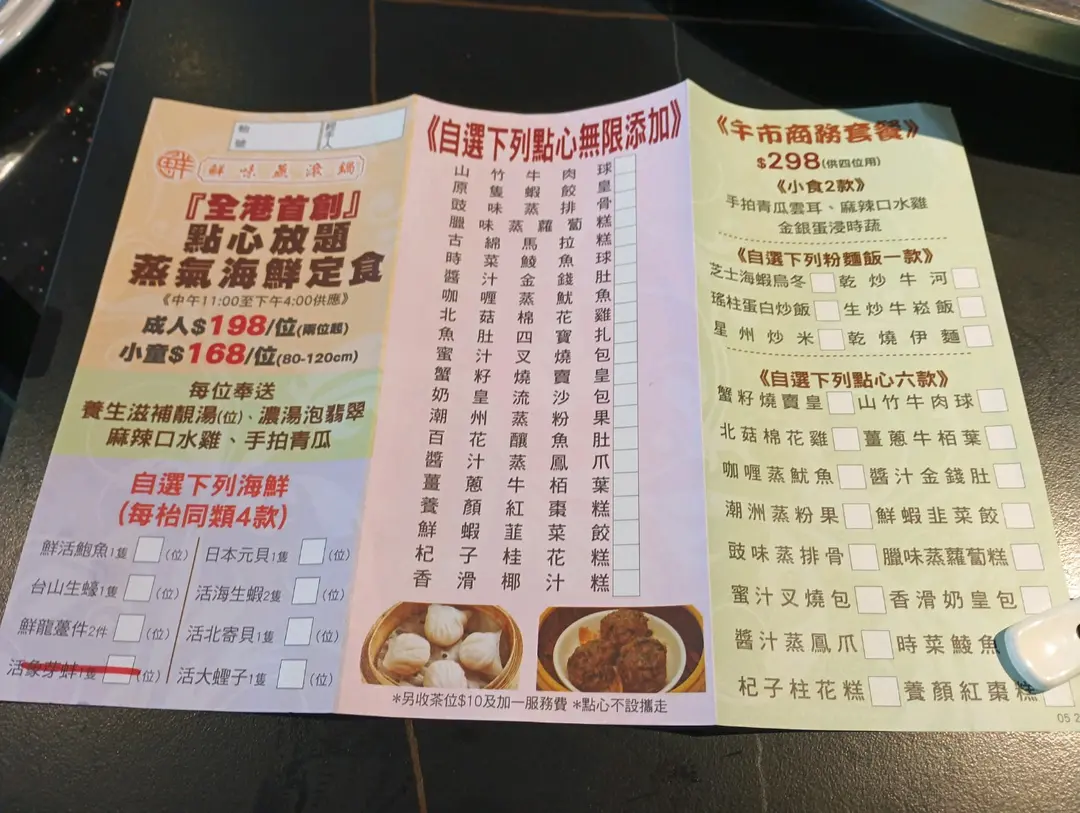 枱號
經手人
鮮 鮮味蒸滾鍋
『全港首創』
點心放題
蒸氣海鮮定食
《中午11:00至下午4:00供應》
成人$198/位(兩位起)
小童$168/位(80-120cm)
每位奉送
養生滋補靚湯(位)、濃湯泡翡翠
麻辣口水雞、手拍青瓜
自選下列海鮮
(每枱同類4款)
鮮活鮑魚1隻 (位) 日本元貝1隻 (位)
台山生蠔1隻 (位) 活海生蝦2隻 (位)
鮮龍躉件2件 (位) 活北寄貝1隻 (位)
活象芽蚌1隻 (位) 活大蟶子1隻 (位)
《自選下列點心無限添加》
山竹牛肉球
原隻蝦餃皇
豉味蒸排骨
臘味蒸蘿蔔糕
古綿馬拉糕
時菜鯪魚球
醬汁金錢肚
咖喱蒸魷魚
北菇棉花雞
魚肚四寶扎
蜜汁叉燒包
蟹籽燒賣皇
奶皇流沙包
潮州蒸粉果
百花釀魚肚
醬汁蒸鳳爪
薑蔥牛栢葉
養顏紅棗糕
鮮蝦韮菜餃
杞子桂花糕
香滑椰汁糕
*另收茶位$10及加一服務費 *點心不設攜走
《午市商務套餐》
$298(供四位用)
《小食2款》
手拍青瓜雲耳、麻辣口水雞
金銀蛋浸時蔬
《自選下列粉麵飯一款》
芝士海蝦烏冬 乾炒牛河
瑤柱蛋白炒飯 生炒牛崧飯
星州炒米 乾燒伊麵
《自選下列點心六款》
蟹籽燒賣皇 山竹牛肉球
北菇棉花雞 薑蔥牛栢葉
咖喱蒸魷魚 醬汁金錢肚
潮洲蒸粉果 鮮蝦韮菜餃
豉味蒸排骨 臘味蒸蘿蔔糕
蜜汁叉燒包 香滑奶皇包
醬汁蒸鳳爪 時菜鯪魚
杞子柱花糕 養顏紅棗糕
05 2